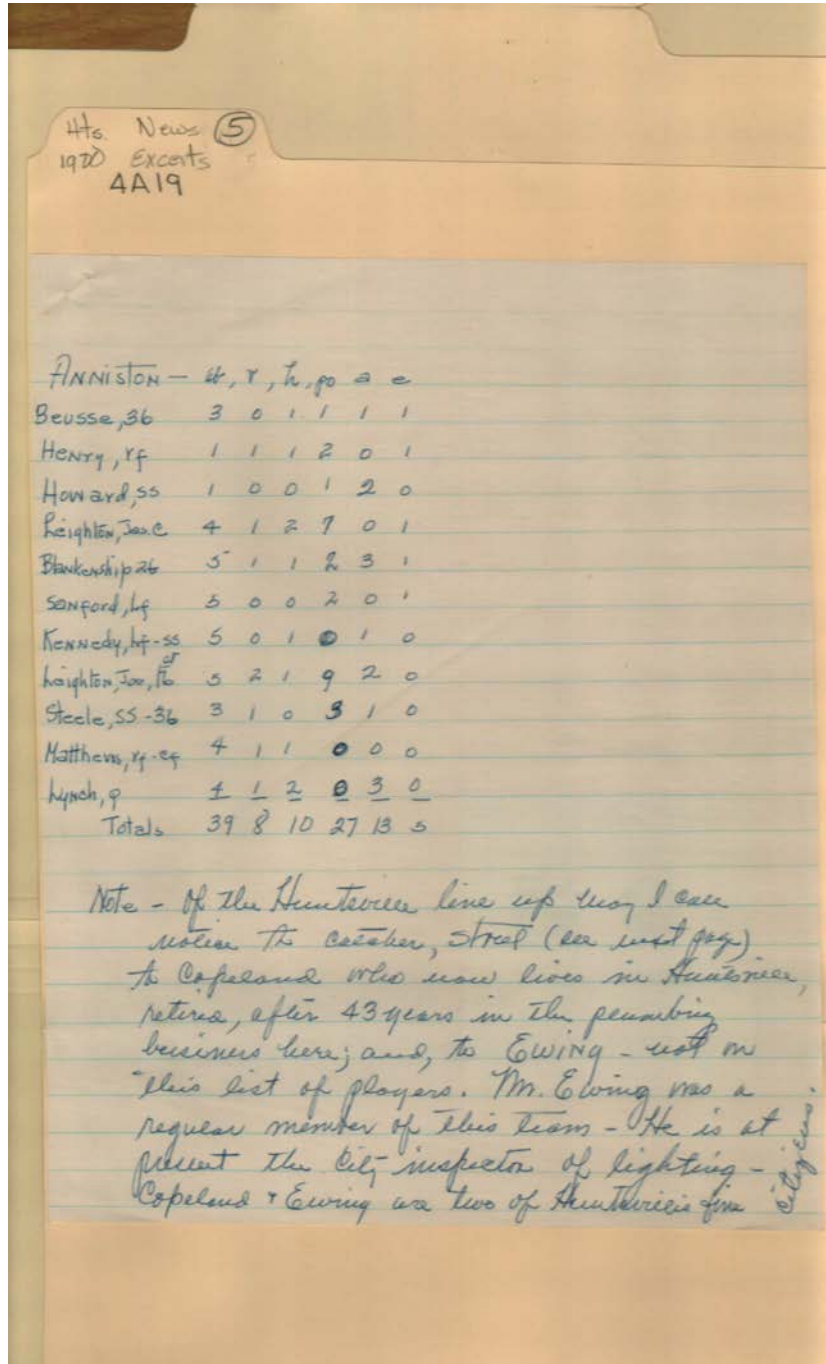 Hts. News (5)
1920 Excerts
4A19
ANNISTON - ab, r, h, po a e
Beusse, 3b 3 0 1 1 1 1
Henry, rf 1 1 1 2 0 1
Howard, ss 1 0 0 1 2 0
Leighton, Jas. c 4 1 2 9 0 1
Blankenship 2b 5 1 1 2 3 1
Sanford, lf 5 0 0 2 0 1
Kennedy, lf-ss 5 0 1 0 1 0
Leighton, Joe, 1b 5 2 1 9 2 0
Steele, SS-3b 3 1 0 3 1 0
Matthews, rf-cf 4 1 1 0 0 0
Lynch, p 4 1 2 0 3 0
Totals 39 8 10 27 13 5
Note - Of the Huntsville line up may I call
notice to catcher, (see next page)
to Copeland who now lives in Huntsville,
retired, after 43 years in the plumbing
business here; and, to EWING - not on
this list of players. Mr. Ewing was a
regular member of this team - He is at
present the City inspector of lighting -
Copeland & Ewing are two of Huntsville's fine
citizens.